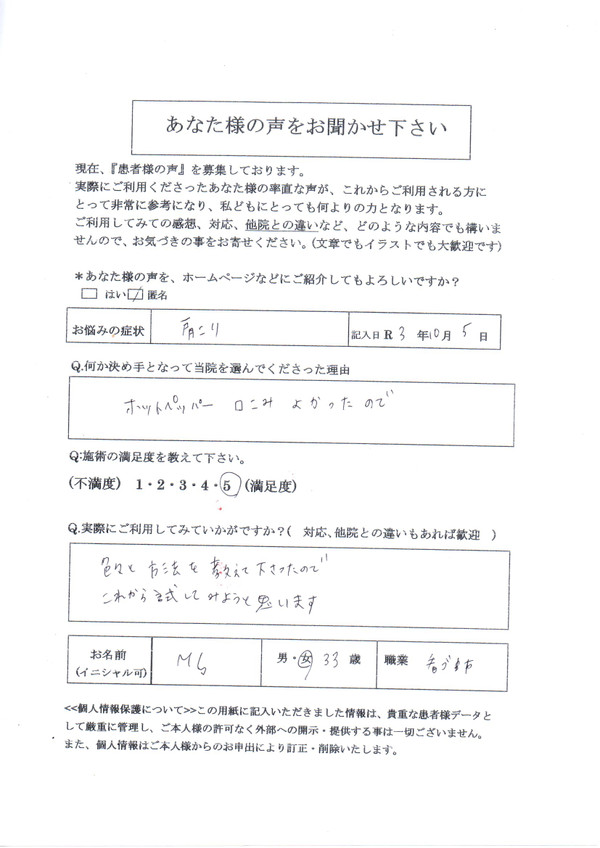 あなた様の声をお聞かせ下さい
現在、『患者様の声』を募集しております。
実際にご利用くださったあなた様の率直な声が、これからご利用される方に
とって非常に参考になり、私どもにとっても何よりの力となります。
ご利用してみての感想、対応、他院との違いなど、どのような内容でも構いま
せんので、お気づきの事をお寄せください。(文章でもイラストでも大歓迎です)
*あなた様の声を、ホームページなどにご紹介してもよろしいですか？
はい 匿名
お悩みの症状 肩こり 記入日 R 3 年 10 月 5 日
Q.何か決め手となって当院を選んでくださった理由
ホットペッパー 口こみ よかったので
Q:施術の満足度を教えて下さい。
(不満度) 1・2・3・4・5 (満足度)
Q.実際にご利用してみていかがですか？( 対応、他院との違いもあれば歓迎 )
色々と方法を教えて下さったので
これから試してみようと思います
お名前
(イニシャル可) 男・女 33 歳 職業 看護師
<<個人情報保護について>>この用紙に記入いただきました情報は、貴重な患者様データと
して厳重に管理し、ご本人様の許可なく外部への開示・提供する事は一切ございません。
また、個人情報はご本人様からのお申出により訂正・削除いたします。